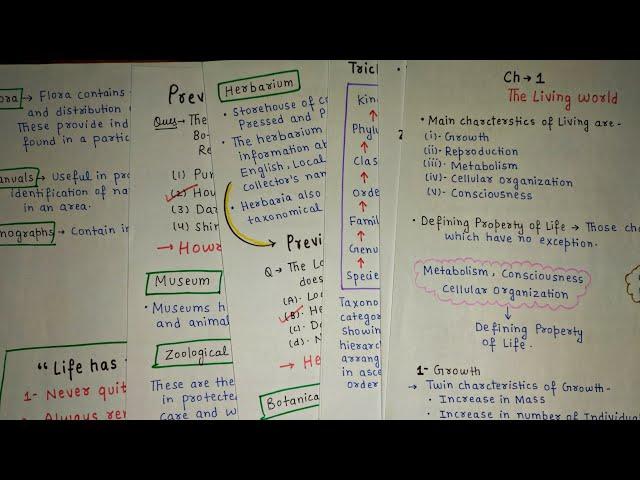 ora → Flora contains
and distribution
These provide ind
found in a partic
anuals → Useful in pro
identification of na
in an area.
nographs → Contain in
"Life has
1- Never quit
Always rem
Previ
Ques → The
Bo
Re
(1) Pur
(2) Hou
(3) Da
(4) Shi
→ Howa
Museum
• Museums h
and animal
Zoological
These are the
in protecte
care and w
Herbarium
• Storehouse of c
Pressed and P
• The herbarium
information at
English, Local
collector's nam
• Herbaria also
taxonomical
Previ
Q → The Lo
does
(A). Lo
(B). He
(C). D
(d). N
→ He
Botanica
Trick
Kin
Phylu
Clas
Orde
Famil
Genu
Specie
Taxono
categor
Showin
hierarc
arrang
in asce
order
Ch → 1
The Living world
• Main charcterstics of Living are -
(i)- Growth
(ii)- Reproduction
(iii)- Metabolism
(iv)- Cellular Organization
(v)- Consciousness
• Defining Property of Life → Those cha
which have no exception.
Metabolism, Consciousness
Cellular Organization
↓
Defining Property
of Life.
1- Growth
→ Twin charcteristics of Growth -
• Increase in Mass
• Increase in number of Individual